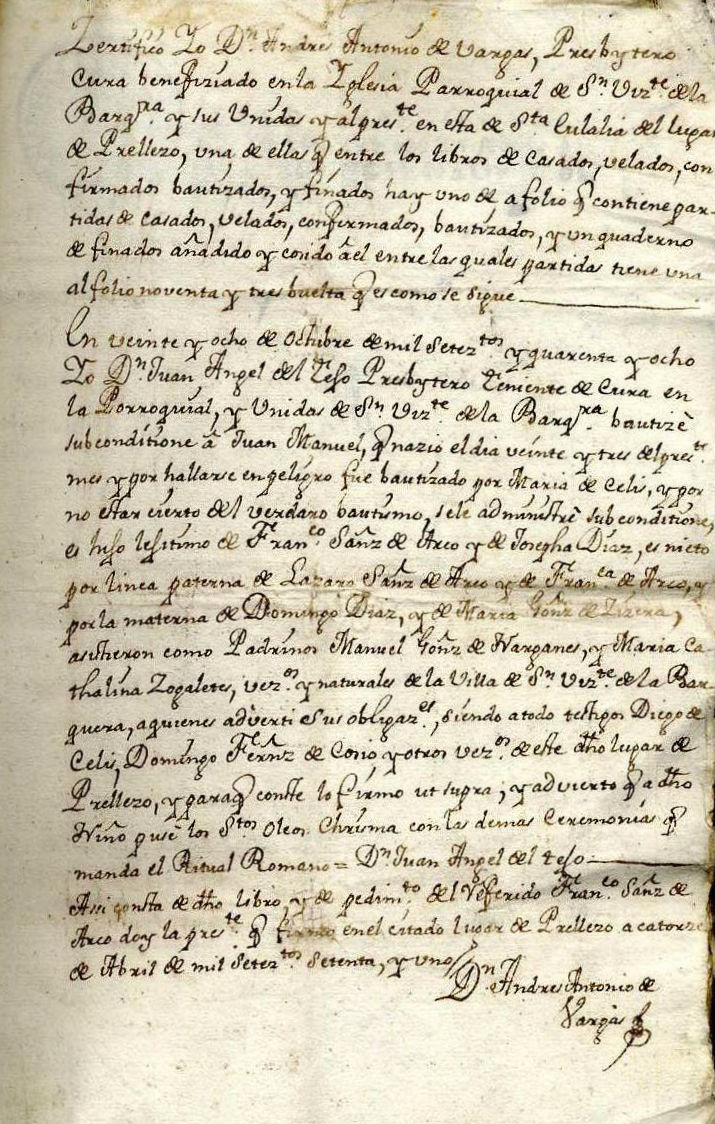 Zertifico Yo Dn. Andres Antonio de Vargas, Presbytero
Cura benefiziado en la Yglesia Parroquial de Sn. Vizte. de la
Barqra. y sus Unidas y al preste. en esta de Sta. Eulalia del lugar
de Prellezo, una de ellas q entre los libros de Casados, velados, con
firmados bautizados, y finados hay uno de a folio q contiene par-
tidas de Casados, velados, confirmados, bautizados, y un quaderno
de finados añadido y cosido âel entre las quales partidas tiene una
al folio noventa y tres buelta q es como se sigue
En veinte y ocho de Octubre de mil Seteztos y quarenta y ocho
Yo Dn. Juan Angel del Teso Presbytero Teniente de Cura en
la Porroquial, y Unidas de Sn. Vizte. de la Barqra. bautizè
subconditione â Juan Manuel, q nazio el dia veinte y tres del preste.
mes y por hallarse en peligro fue bautizado por Maria de Celis, y por
no estar cierto del verdaro bautismo, sele administrè subconditione,
es hijo lesitimo de Franco. Sañz de Arco y de Josepha Diaz, es nieto
por linea paterna de Lazaro Sañz de Arco y de Franca. de Arco, y
por la materna de Domingo Diaz, y de Maria Goñz de
asistieron como Padrinos Manuel Goñz de Narganes, y Maria Ca-
thalina Zogaletes, vezos. y naturales de la Villa de Sn. Vizte. de la Bar-
quera, aquienes adverti sus obligazes, siendo atodo testigos Diego de
Celis, Domingo Ferñz de Cosio y otros vezos. de este dho lugar de
Prellezo, y paraq conste lo firmo ut supra, y advierto q a dho
Niño pusè los Stos Oleos Chrisma con las demas Ceremonias q
manda el Ritual Romano = Dn. Juan Angel del teso
Assi consta de dho libro, y de pedimto. del Referido Franco. Sañz de
Arco doy la preste. q firmo enel citado lugar de Prellezo a catorze
de Abril de mil Seteztos Setenta, y uno
Dn. Andres Antonio de
Vargas